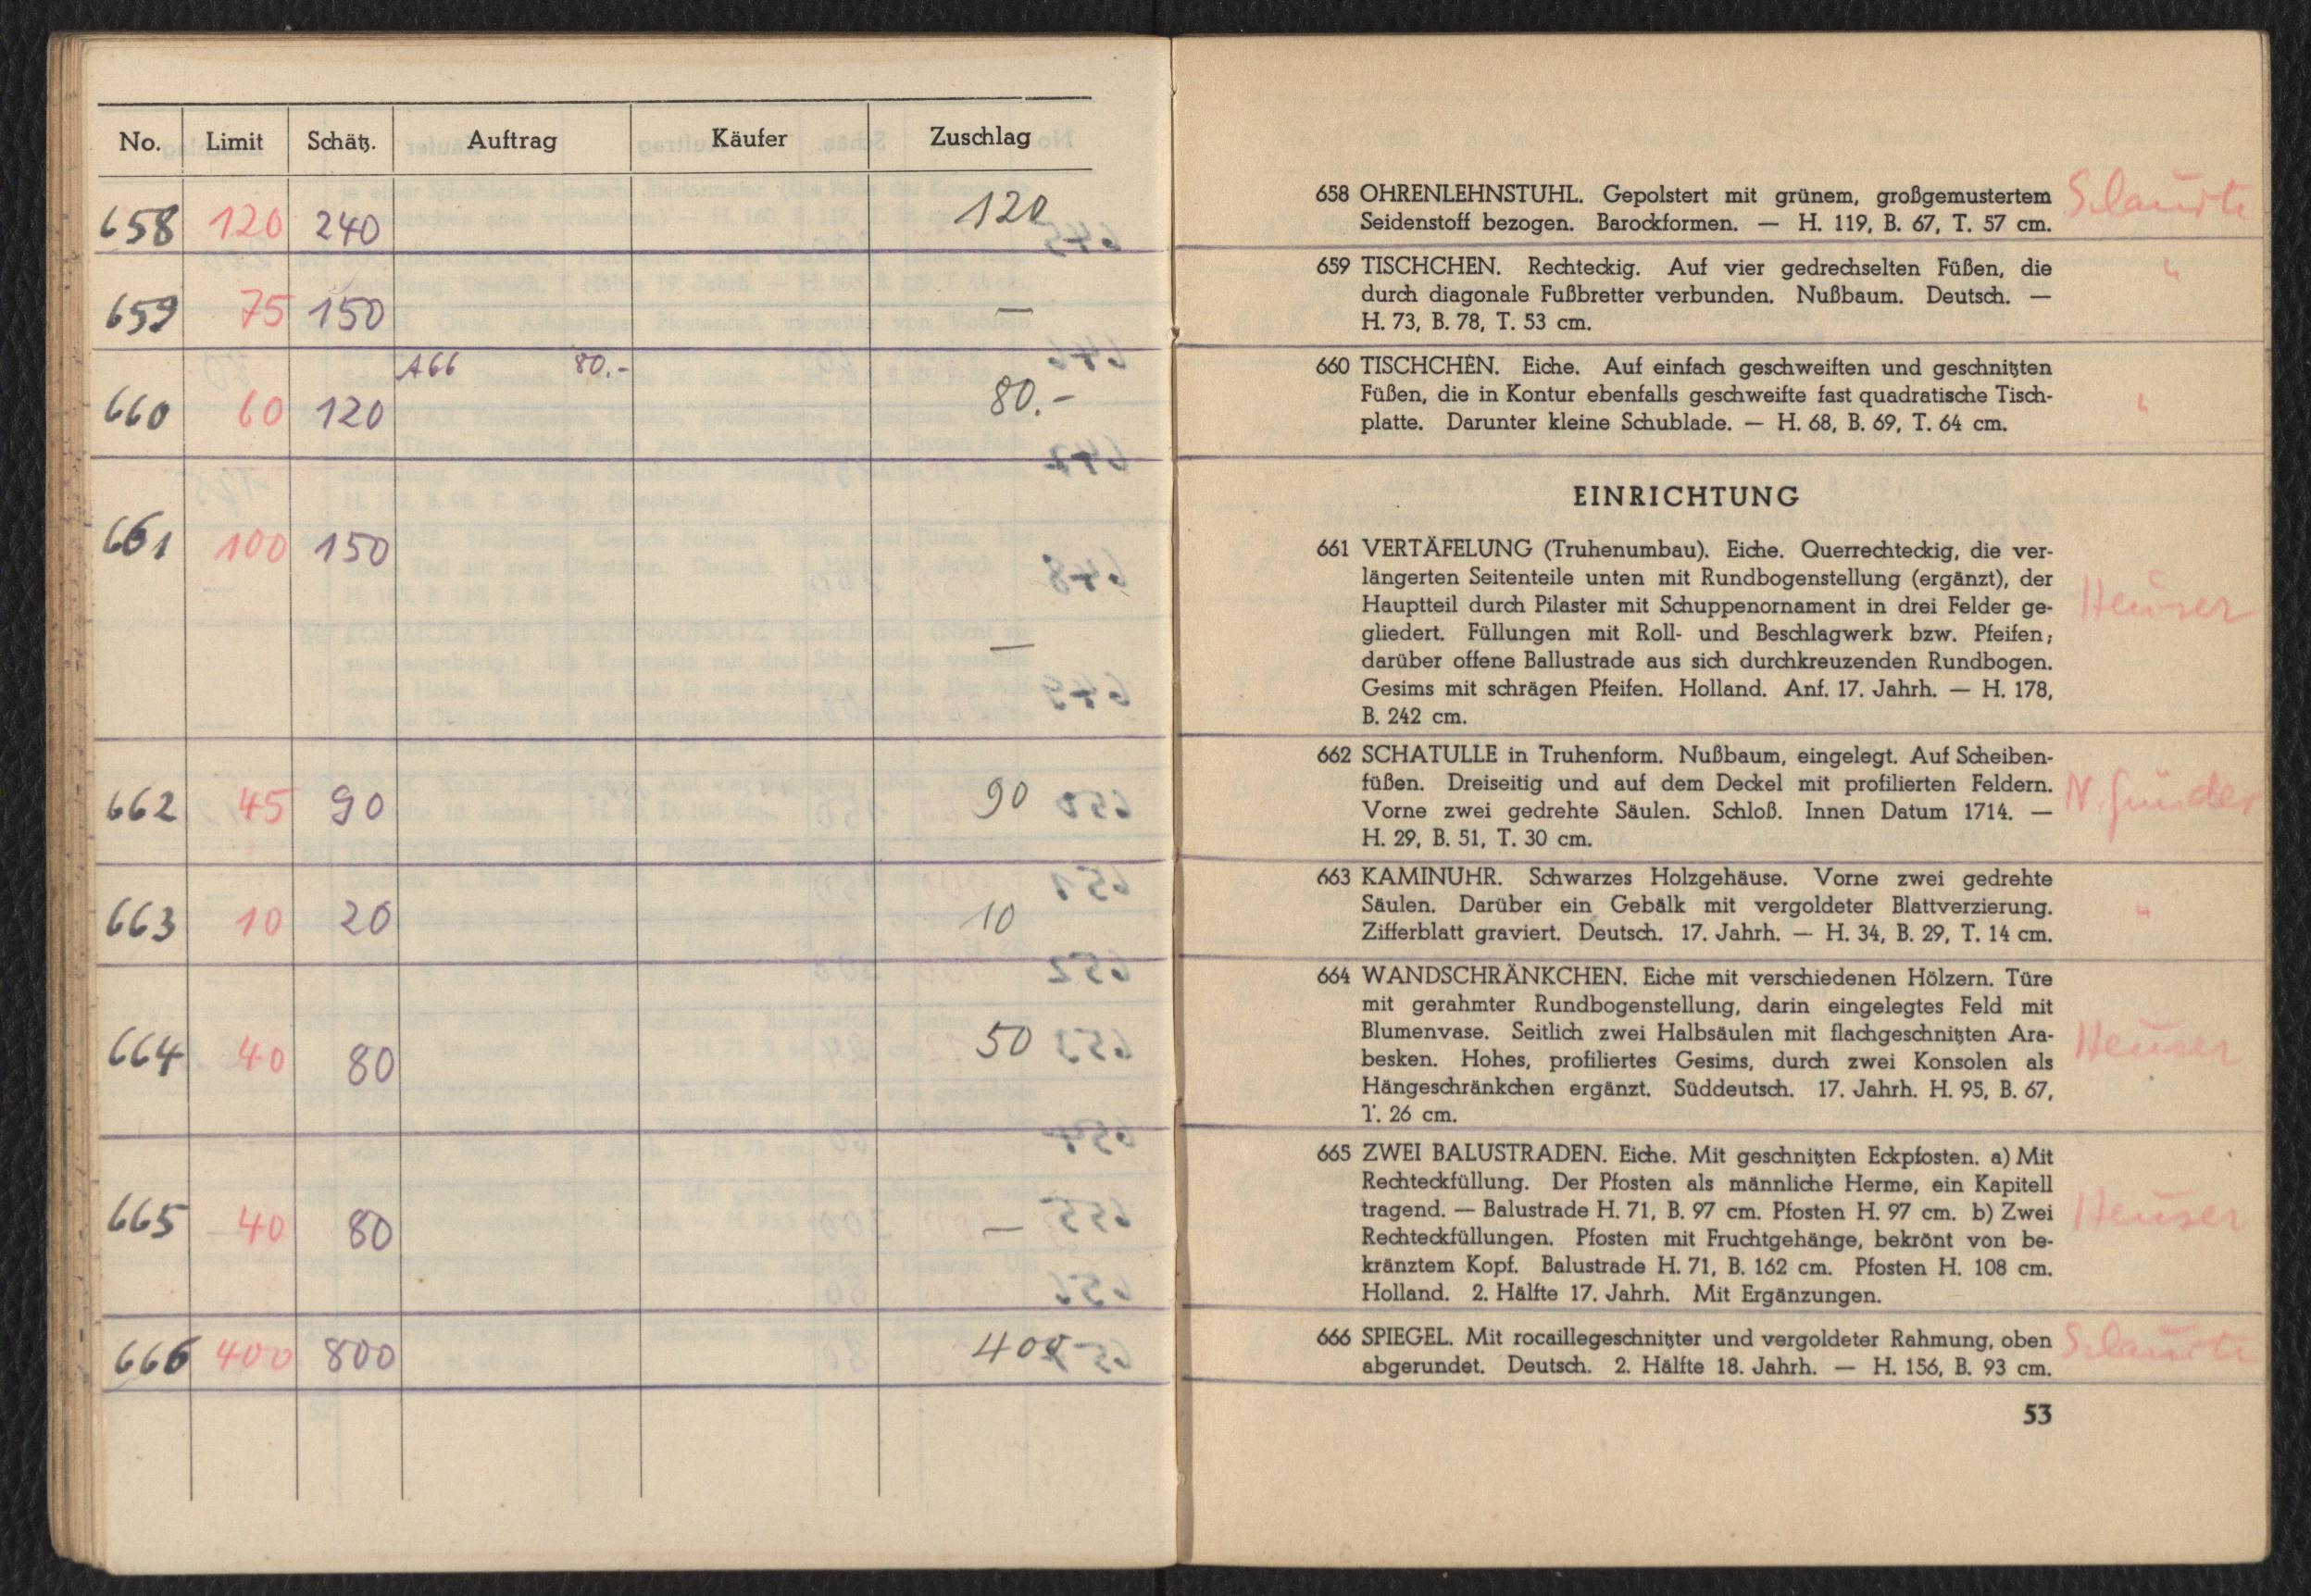 No. Limit Schätz. Auftrag Käufer Zuschlag
658 120 240 120
659 75 150 —
A66 80.-
660 60 120 80.-
661 100 150 —
662 45 90 90
663 10 20 10
664 40 80 50
665 40 80 —
666 400 800 400
658 OHRENLEHNSTUHL. Gepolstert mit grünem, großgemustertem
Seidenstoff bezogen. Barockformen. — H. 119, B. 67, T. 57 cm.
659 TISCHCHEN. Rechteckig. Auf vier gedrechselten Füßen, die "
durch diagonale Fußbretter verbunden. Nußbaum. Deutsch. —
H. 73, B. 78, T. 53 cm.
660 TISCHCHEN. Eiche. Auf einfach geschweiften und geschnitzten
Füßen, die in Kontur ebenfalls geschweifte fast quadratische Tisch- "
platte. Darunter kleine Schublade. — H. 68, B. 69, T. 64 cm.
EINRICHTUNG
661 VERTÄFELUNG (Truhenumbau). Eiche. Querrechteckig, die ver-
längerten Seitenteile unten mit Rundbogenstellung (ergänzt), der
Hauptteil durch Pilaster mit Schuppenornament in drei Felder ge- Heuser
gliedert. Füllungen mit Roll- und Beschlagwerk bzw. Pfeifen;
darüber offene Ballustrade aus sich durchkreuzenden Rundbogen.
Gesims mit schrägen Pfeifen. Holland. Anf. 17. Jahrh. — H. 178,
B. 242 cm.
662 SCHATULLE in Truhenform. Nußbaum, eingelegt. Auf Scheiben-
füßen. Dreiseitig und auf dem Deckel mit profilierten Feldern.
Vorne zwei gedrehte Säulen. Schloß. Innen Datum 1714. —
H. 29, B. 51, T. 30 cm.
663 KAMINUHR. Schwarzes Holzgehäuse. Vorne zwei gedrehte
Säulen. Darüber ein Gebälk mit vergoldeter Blattverzierung. "
Zifferblatt graviert. Deutsch. 17. Jahrh. — H. 34, B. 29, T. 14 cm.
664 WANDSCHRÄNKCHEN. Eiche mit verschiedenen Hölzern. Türe
mit gerahmter Rundbogenstellung, darin eingelegtes Feld mit
Blumenvase. Seitlich zwei Halbsäulen mit flachgeschnitzten Ara- Heuser
besken. Hohes, profiliertes Gesims, durch zwei Konsolen als
Hängeschränkchen ergänzt. Süddeutsch. 17. Jahrh. H. 95, B. 67,
T. 26 cm.
665 ZWEI BALUSTRADEN. Eiche. Mit geschnitzten Eckpfosten. a) Mit
Rechteckfüllung. Der Pfosten als männliche Herme, ein Kapitell
tragend. — Balustrade H. 71, B. 97 cm. Pfosten H. 97 cm. b) Zwei Heuser
Rechteckfüllungen. Pfosten mit Fruchtgehänge, bekrönt von be-
kränztem Kopf. Balustrade H. 71, B. 162 cm. Pfosten H. 108 cm.
Holland. 2. Hälfte 17. Jahrh. Mit Ergänzungen.
666 SPIEGEL. Mit rocaillegeschnitzter und vergoldeter Rahmung, oben
abgerundet. Deutsch. 2. Hälfte 18. Jahrh. — H. 156, B. 93 cm.
53